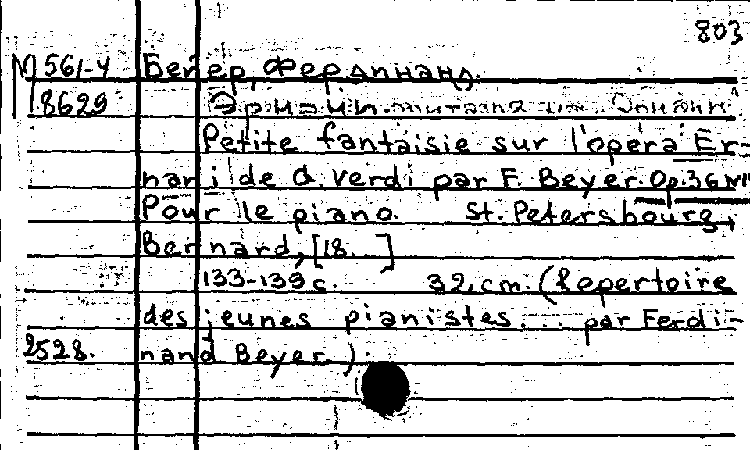 803
М 561-У Бейер, Фердинанд.
18629
Petite fantaisie sur l'opera Er-
nani de G. Verdi par F. Beyer. Op. 36 №
Pour le piano. St. Petersbourg,
Bernard, [18. ]
133-139 c. 32. cm. (Repertoire
des jeunes pianistes... par Ferdi-
2528. nand Beyer.).